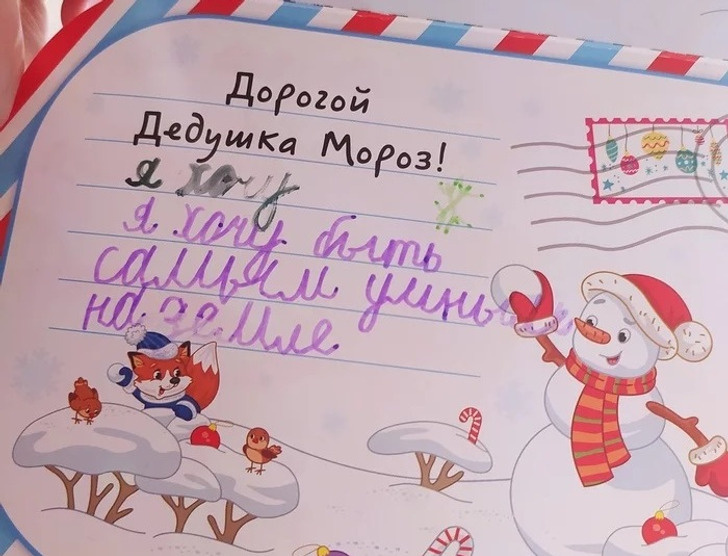 Дорогой
Дедушка Мороз!
я хочу
я хочу быть
самым умным
на земле